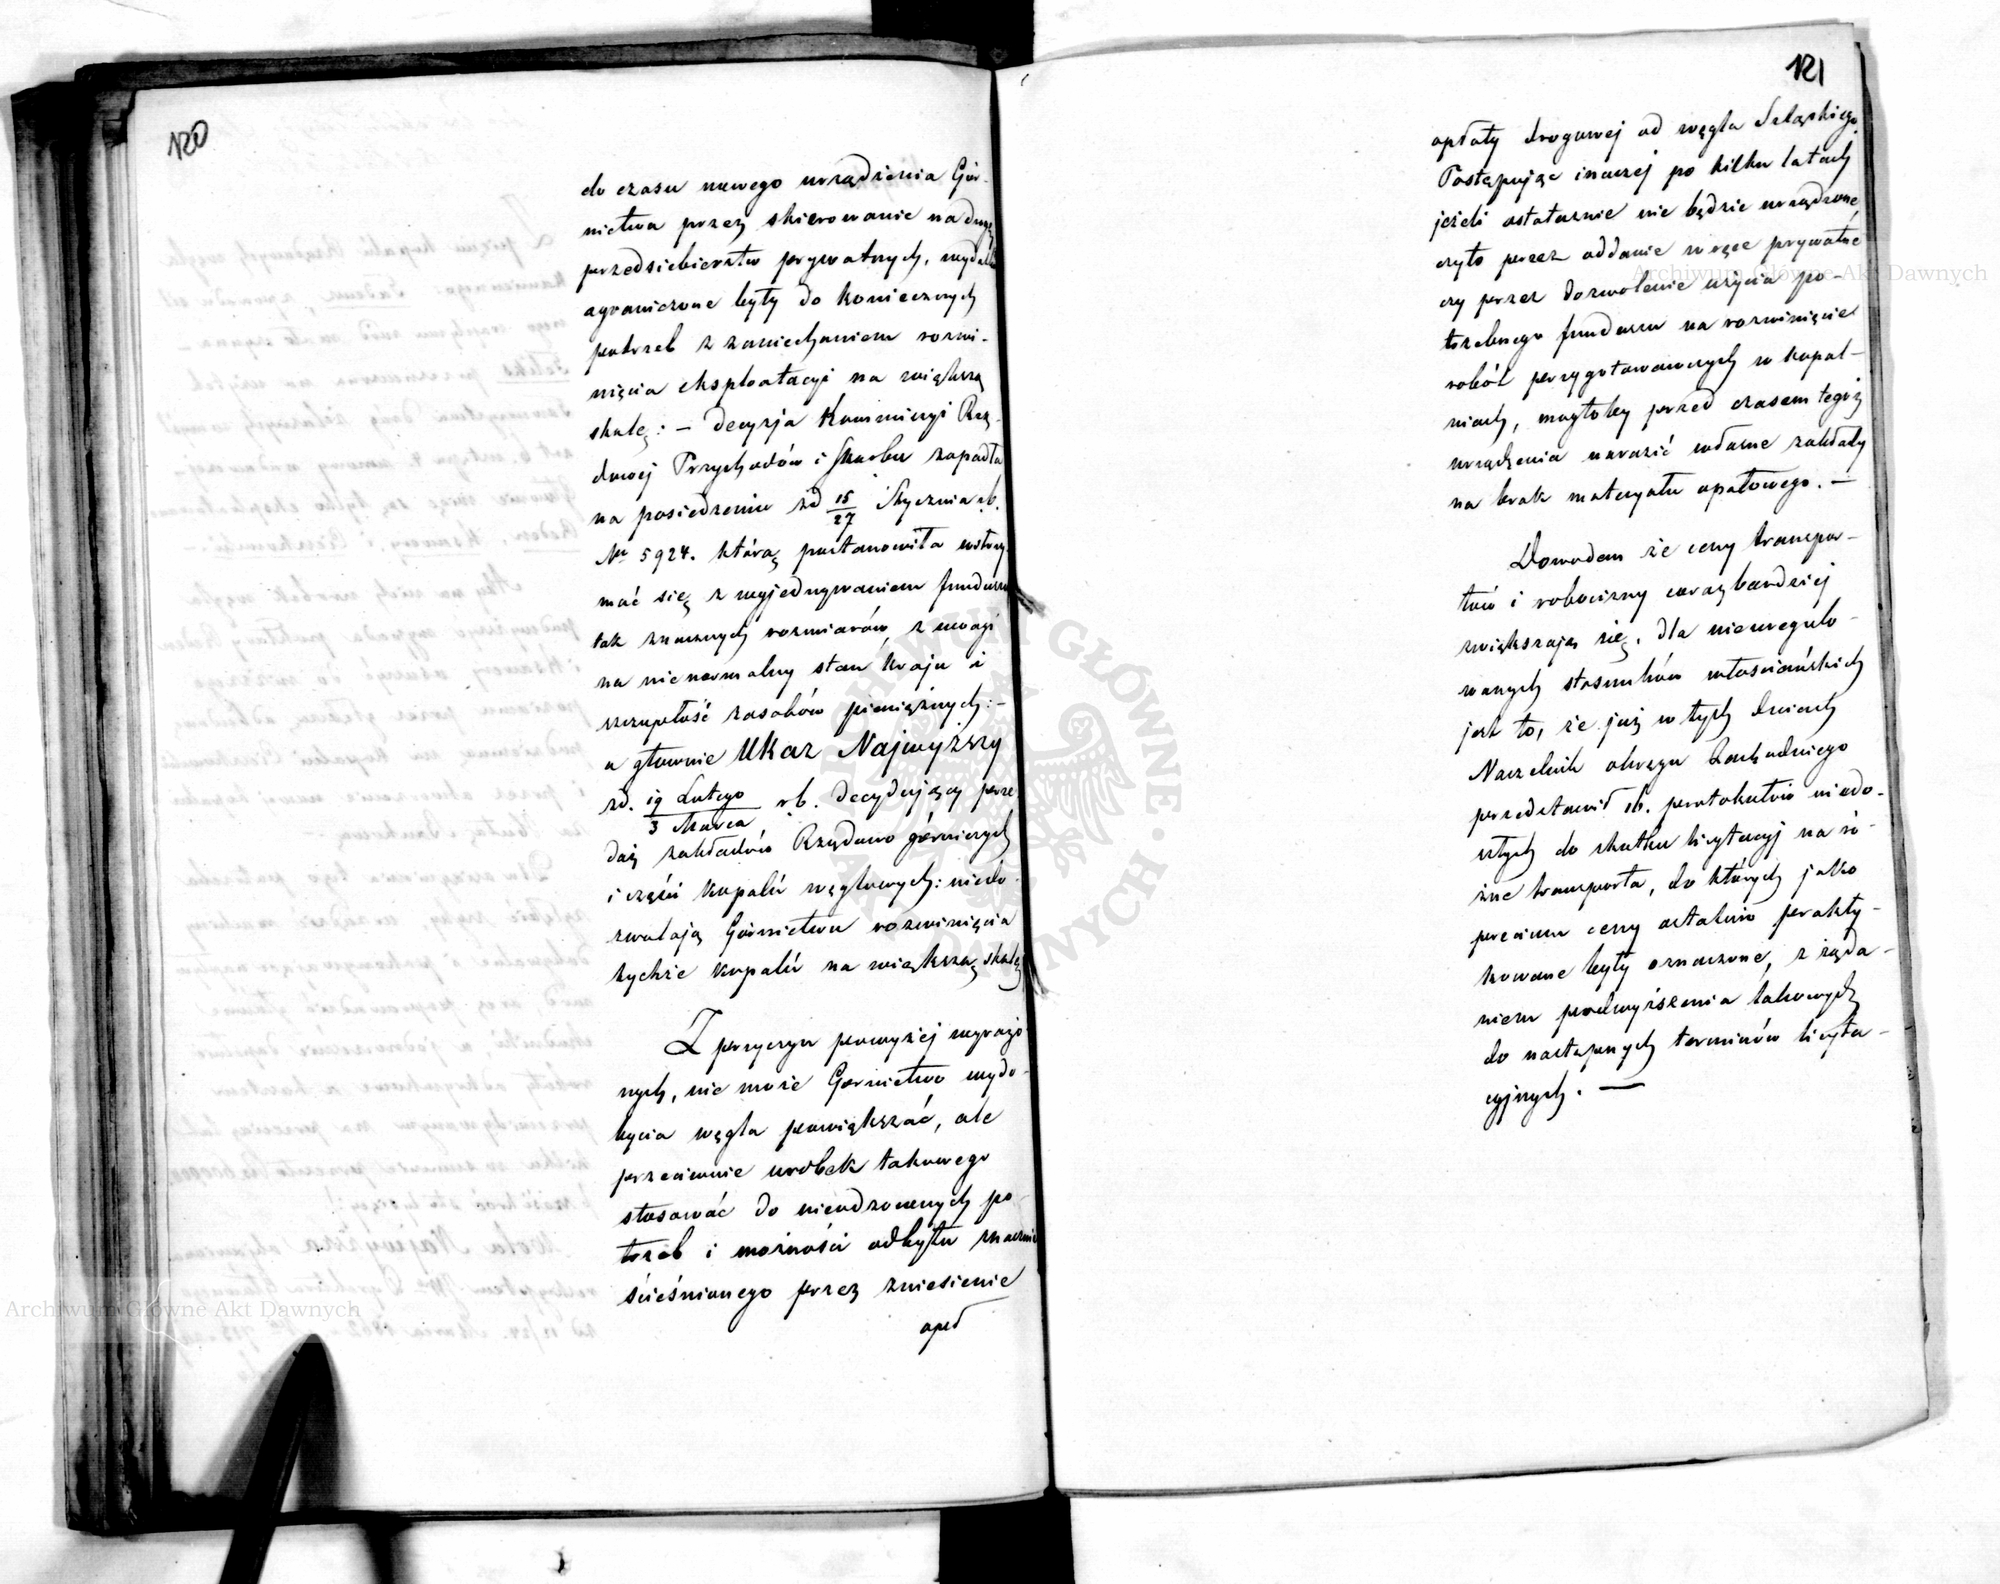 120
do czasu nowego urządzenia Gór-
nictwa przez skierowanie na drogę
przedsiebierstw prywatnych, wydatki
ograniczone były do koniecznych
potrzeb z zaniechaniem rozwi-
nięcia eksploatacyi na większą
skalę: – decyzja Kommissyi Rzą-
dowej Przychodów i Skarbu zapadła
na posiedzeniu zd 15/27 Stycznia rb.
Nr 5924. którą postanowiła wstrzy-
mać się z wyjednywaniem funduszu
tak znacznych rozmiarów, z uwagi
na nienormalny stan kraju i
szczupłość zasobów pieniężnych: –
a głównie Ukaz Najwyższy
zd. 19 Lutego/3 Marca rb. decydujący prze
daż zakładów Rządowo górniczych
i części kopalń węglowych: niedo-
zwalają Górnictwu rozwinięcia
tychże kopalń na większą skalę
Z przyczyn powyżej wyrażo-
nych, nie może Górnictwo wydo-
bycia węgla powiększać, ale
przeciwnie urobek takowego
stosować do nieodzownych po-
trzeb i możności odbytu znacznie
ścieśnionego przez zniesienie
opł
121
opłaty drogowej od węgla Szląskiego.
Postępując inaczej po kilku latach
jeżeli ostatecznie nie będzie urządzone,
czyto przez oddanie w ręce prywatne
czy przez dozwolenie użycia po-
trzebnego funduszu na rozwinięcie
robót przygotowawczych w kopal-
niach, mogłoby przed czasem tegoż
urządzenia narazić własne zakłady
na brak materyału opałowego. –
Dowodem że ceny transpor-
tów i robocizny coraz bardziej
zwiększają się, dla nieuregulo-
wanych stosunków włościańskich
jest to, że już w tych dniach
Naczelnik okręgu Zachodniego
przedstawił 16. protokułów niedo-
szłych do skutku licytacyj na ró-
żne transporta, do których jako
precium ceny ostatnio prakty-
kowane były oznaczone, z żąda-
niem podwyższenia takowych
do następnych terminów licyta-
cyjnych. —
Archiwum Główne Akt Dawnych
Archiwum Główne Akt Dawnych
ARCHIWUM GŁÓWNE AKT DAWNYCH